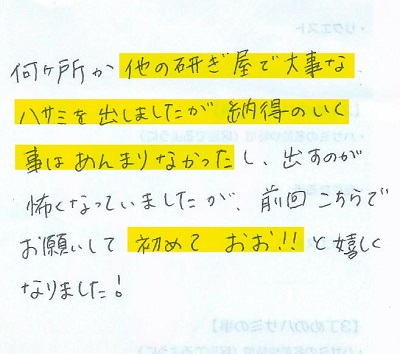 何ヶ所か他の研ぎ屋で大事な
ハサミを出しましたが納得のいく
事はあんまりなかったし、出すのが
怖くなっていましたが、前回こちらで
お願いして初めておお!!と嬉しく
なりました!